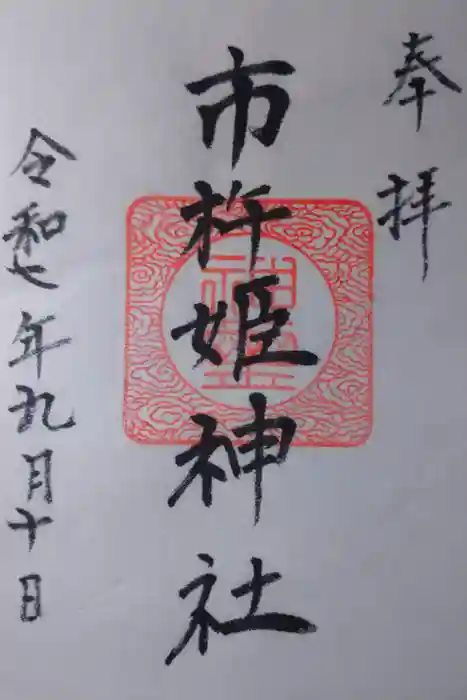 奉拝
市杵姫神社
令和七年九月十日